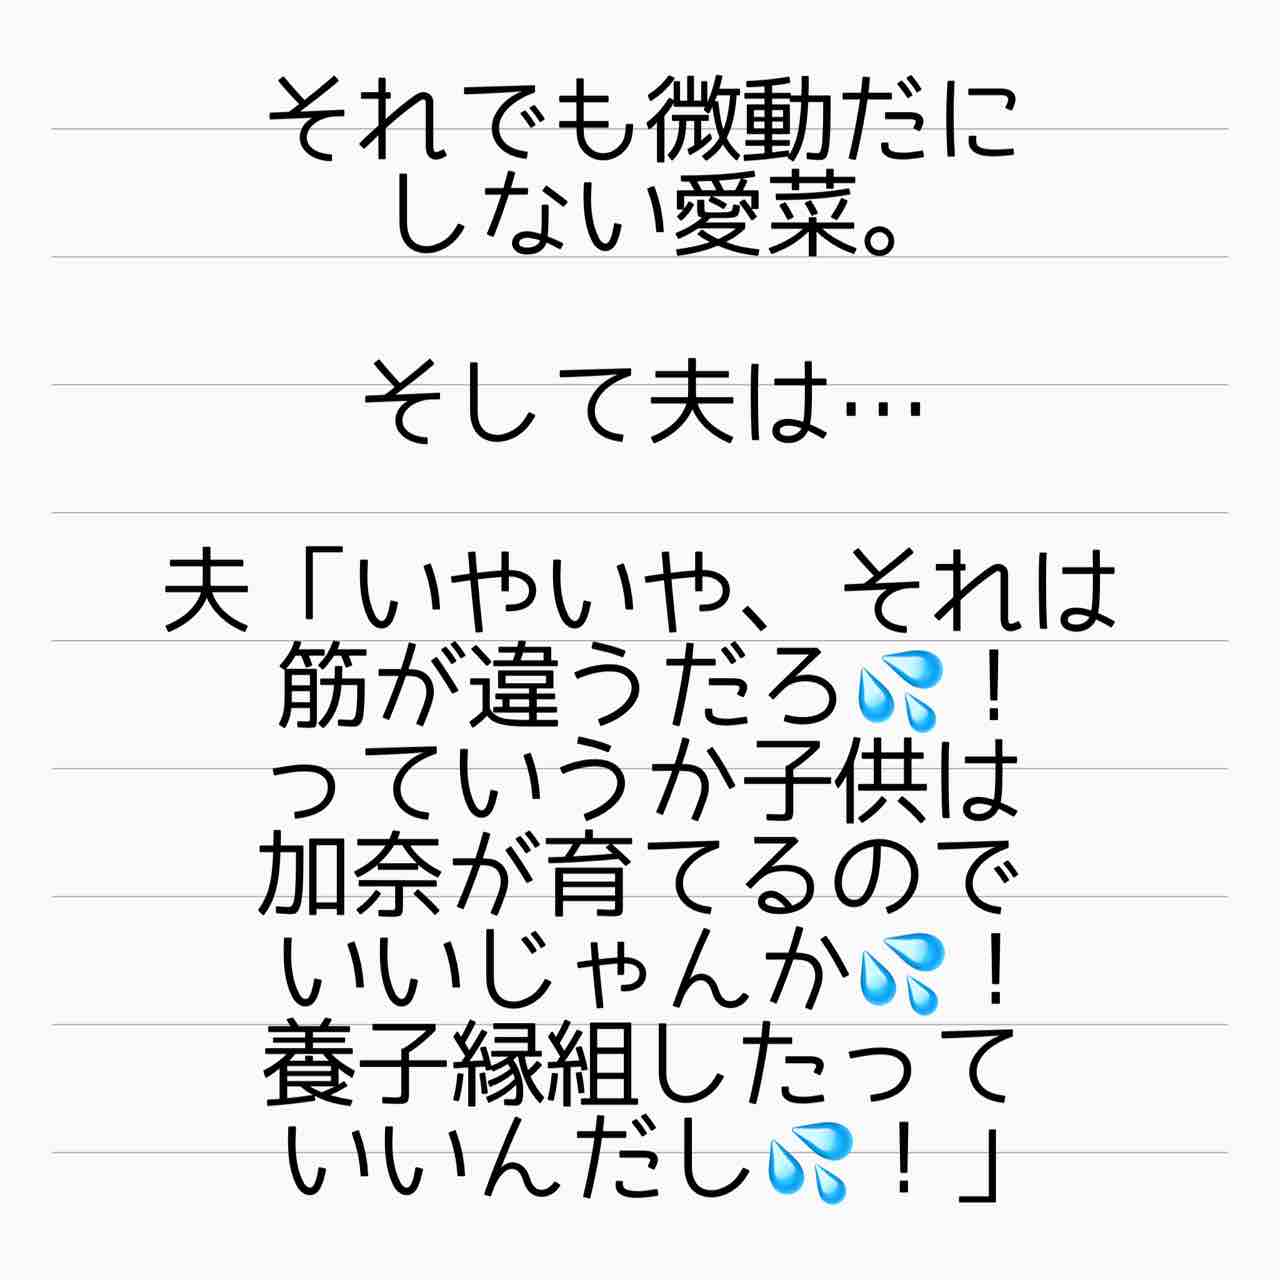 それでも微動だに
しない愛菜。
そして夫は…
夫「いやいや、それは
筋が違うだろ💦！
っていうか子供は
加奈が育てるので
いいじゃんか💦！
養子縁組したって
いいんだし💦！」